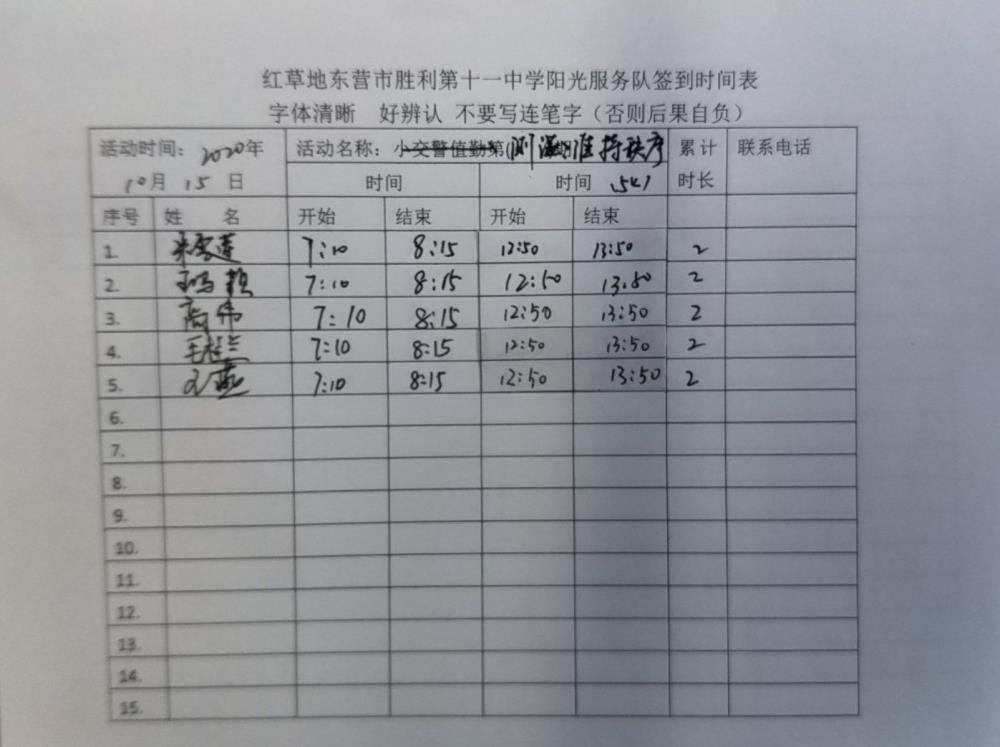 红草地东营市胜利第十一中学阳光服务队签到时间表
字体清晰 好辨认 不要写连笔字（否则后果自负）
活动时间：2020年 活动名称：小交警值勤第( 测温维持秩序 累计 联系电话
10月 15 日 时间 时间 时长
序号 姓 名 开始 结束 开始 结束
1. 7:10 8:15 12:50 13:50 2
2. 8:15 7:10 12:50 13:50 2
3. 高伟 7:10 8:15 12:50 13:50 2
4. 毛桂兰 7:10 8:15 12:50 13:50 2
5. 7:10 8:15 12:50 13:50 2
6.
7.
8.
9.
10.
11.
12.
13.
14.
15.